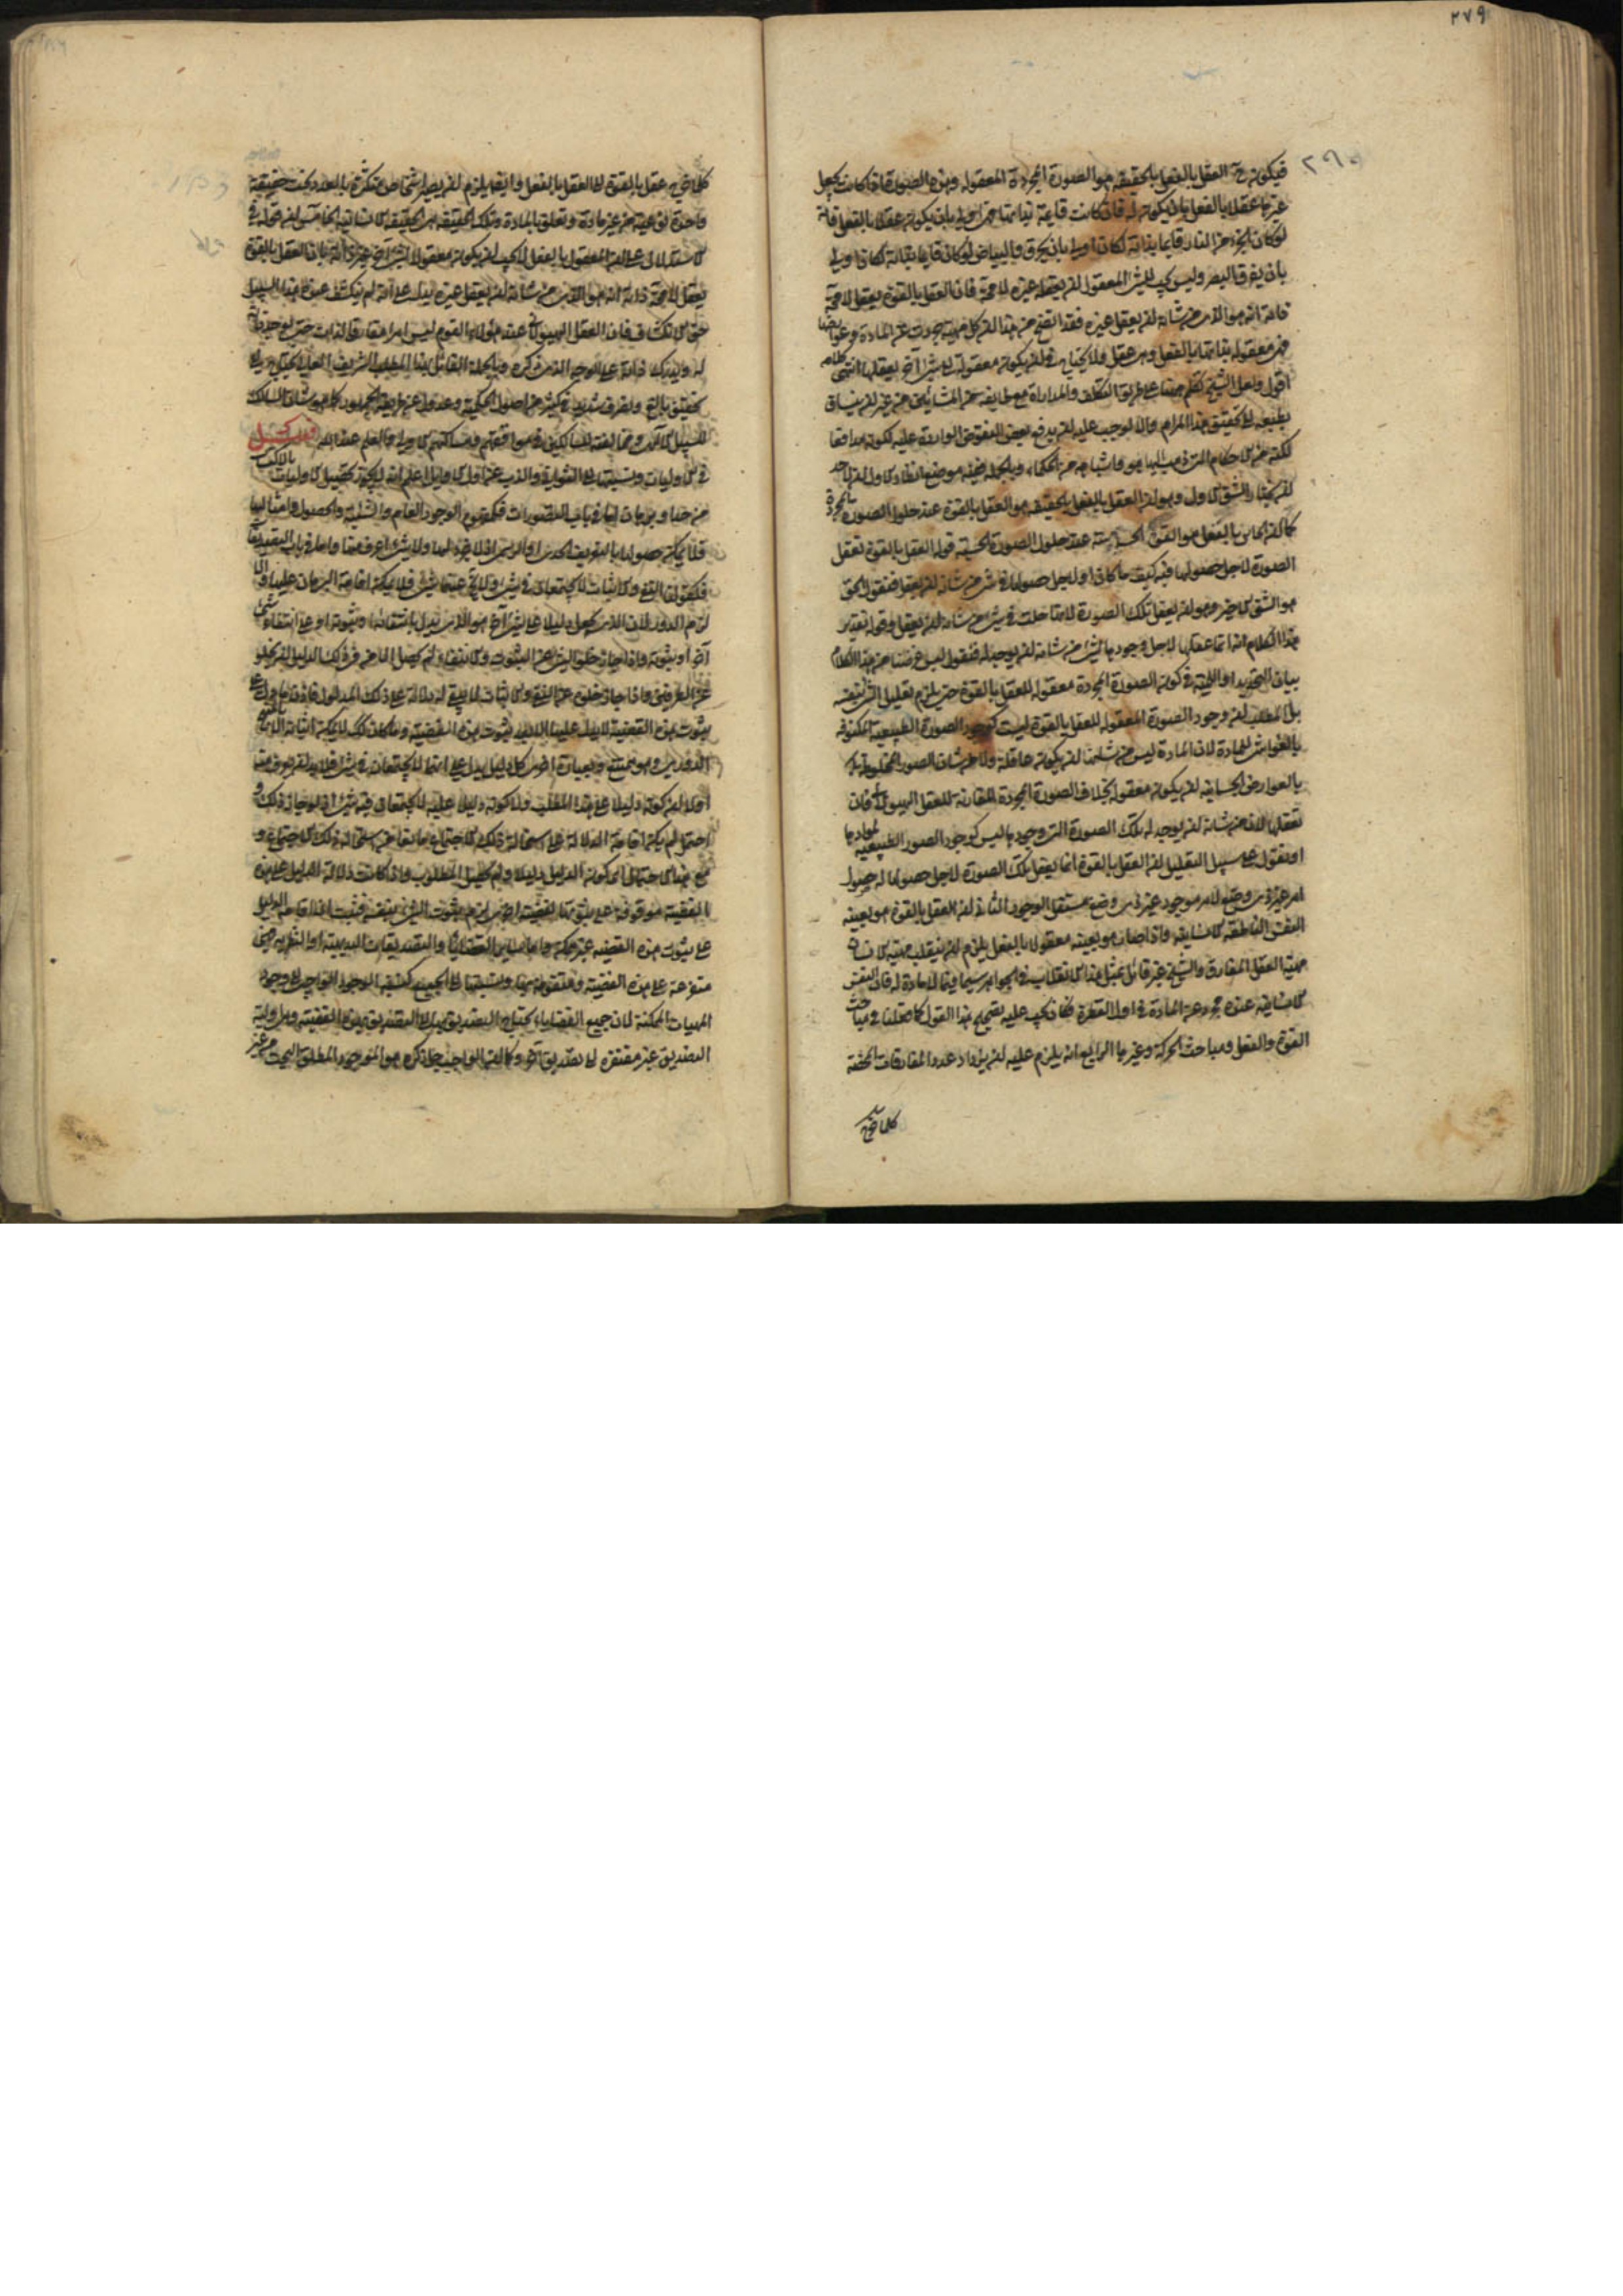 ۲۷۹
فيكون ح العقل بالفعل بالحقيقة هو الصورة المجردة المعقولة وهذه الصورة اذا كانت تجعل
غيرها عقلا بالفعل بان يكون له فان كانت قائمة بذاتها فهي اولى بان يكون عقلا بالفعل فانه
لو كان الجزء من النار قائما بذاته لكان اولى بان يحرق والبياض لو كان قائما بذاته لكان اولى
بان يفرق البصر وليس يجب للشئ المعقول ان يعقله غيره لا محة فان العقل بالقوة يعقل لا محة
ذاته انه هو الذي من شانه ان يعقل غيره فقد اتضح من هذا ان كل مهية جردت عن المادة وعوارضها
فهي معقولة بذاتها بالفعل وهي عقل فلا يحتاج في ان يكون معقولة الى شئ آخر يعقلها انتهى كلامه
اقول ولعل الشيخ تكلم ههنا على طريق التكلف والمداراة مع طايفة من المشائين من غير ان ينساق
بطبعه الى تحقيق هذا المرام والا لوجب عليه ان يدفع بعض النقوض الواردة عليه لكونه مدافعا
لكثير من الاحكام التي ذهب اليها هو واشباهه من الحكماء وبالجملة ففيه موضع انظار الاول ان لاحد
ان يختار الشق الاول وهو ان العقل بالفعل بالحقيقة هو العقل بالقوة عند حلول الصورة المجردة
كما ان الحاس بالفعل هو القوة الحسية عند حلول الصورة الحسية قوله العقل بالقوة تعقل
الصورة لاجل حصولها فيه كيف ما كان او لاجل حصولها في شئ من شانه ان يعقل فنقول الحق
هو الشق الاخير وهو ان يعقل تلك الصورة لانها حلت في شئ من شانه ان يعقل وقوله تقدير
هذا الكلام انه انما عقلها لاجل وجودها لشئ من شانه ان يوجد له فنقول ليس غرضنا من هذا الكلام
بيان التحديد او اللمية في كون الصورة المجردة معقولة للعقل بالقوة حتى يلزم تعليل الشئ بنفسه
بل المطلب ان وجود الصورة المعقولة للعقل بالقوة ليست كوجود الصورة الطبيعية المكنوفة
بالغواشي للمادة لان المادة ليس من شانها ان يكون عاقلة ولا من شان الصور المخلوطة
بالعوارض الجسمانية ان يكون معقولة بخلاف الصورة المجردة المقارنة للعقل الهيولاني فان
تعقلها لان من شانه ان يوجد له تلك الصورة التي وجودها ليس كوجود الصور الطبيعية لموادها
او نقول على سبيل التعليل ان العقل بالقوة انما يعقل تلك الصورة لاجل حصولها له حصول
امر غير ذي وضع لامر موجود غير ذي وضع مستقل الوجود الثاني ان العقل بالقوة هو بعينه
النفس الناطقة الانسانية واذا صار هو بعينه معقولا بالفعل يلزم ان ينقلب مهية الانسان
مهية العقل المفارق والشيخ غير قائل بمثل هذا الانقلاب في الجواهر سيما فيما لا مادة له فان النفس
الانسانية عنده مجردة عن المادة في اول الفطرة فكان يجب عليه تصحيح هذا القول كما فعلنا في مباحث
القوة والفعل ومباحث الحركة وغيرها الرابع انه يلزم عليه ان يزداد عدد المفارقات المحضة
كلما خرج
كلما خرج عقل بالقوة الى العقل بالفعل وايضا يلزم ان يصير اشخاص متكثرة بالعدد تحت حقيقة
واحدة نوعية من غير مادة وتعلق بالمادة وتلك الحقيقة هي الحقيقة الانسانية الخامس ان قوله في
الاستدلال على ان المعقول بالفعل لا يجب ان يكون معقولا لشئ آخر غير ذاته بان العقل بالقوة
يعقل لا محة ذاته انه هو الذي من شانه ان يعقل غيره يدل على انه لم ينكشف عنده هذا السبيل
حق الانكشاف فان العقل الهيولاني عند هؤلاء القوم ليس امرا مفارق الذات حتى يوجد ذاته
له ويدرك ذاته على الوجه الذي ذكره وبالجملة القائل بهذا المطلب الشريف العالي يحتاج الى
تحقيق بالغ وتصرف شديد في كثير من اصول الحكمة وعدول عن طريقة الجمهور كما هو شان السالك
للسبيل الى الله في مخالفته للساكنين في مواقفهم ومساكنهم الاولى والعلم عند الله فصل
في الاوليات ونسبتها الى الثواني والذب عن اول الاوايل اعلم انه لا يجوز تحصيل الاوليات بالاكتساب
من حد او برهان اما في باب التصورات فكمفهوم الوجود العام والشيئية والحصول وامثالها
فلا يمكن حصولها بالتعريف الحدي او الرسمي اذ لا جزء لها ولا شئ اعرف منها واما في باب التصديقات
فكقولنا النفي والاثبات لا يجتمعان في شئ ولا يخ عنهما شئ فلا يمكن اقامة البرهان عليها والا
لزم الدور لان الذي يجعل دليلا على شئ آخر هو الذي يدل بانتفائه او ثبوته على انتفاء شئ
آخر او ثبوته واذا جاز خلو الشئ عن الثبوت والانتفاء لم يحصل الامن في ذلك الدليل ان يخلو
عن الطرفين واذا جاز خلوه عن النفي والاثبات لم يبق له دلالة على ذلك المدلول فاذن ما دل على
ثبوت هذه القضية لا يدل عليها الا بعد ثبوت هذه القضية وما كان كذلك لا يمكن اثباته الا بالنحو
الدوري وهو ممتنع وبعبارة اخرى كل دليل يدل على انهما لا يجتمعان في شئ فلا بد ان يعرف منه
اولا ان كونه دليلا على هذا المطلب ولا كونه دليلا عليه لا يجتمعان فيه شئ اذ لو جاز ذلك و
احتمل لم يكن اقامة الدلالة على استحالة ذلك الاجتماع مانعا من استحالة ذلك الاجتماع و
مع هذا الاحتمال اى كونه الدليل دليلا ولم يحصل المطلوب واذا كانت دلالة الدليل على هذه
القضية موقوفة على ثبوتها فلو ثبتت لزم ثبوت الشئ بنفسه فثبت ان اقامة الدليل
على ثبوت هذه القضية غير ممكنة واما ساير القضايا والتصديقات البديهية او النظرية فهي
متفرعة على هذه القضية ومتقومة بها ونسبتها الى الجميع كنسبة الوجود الواجب الى وجود
المهيات الممكنة لان جميع القضايا يحتاج التصديق بها الى التصديق بهذه القضية وهي اولية
التصديق غير مفتقرة الى تصديق آخر وكما ان الواجب جل ذكره هو الموجود المطلق البحت من غير